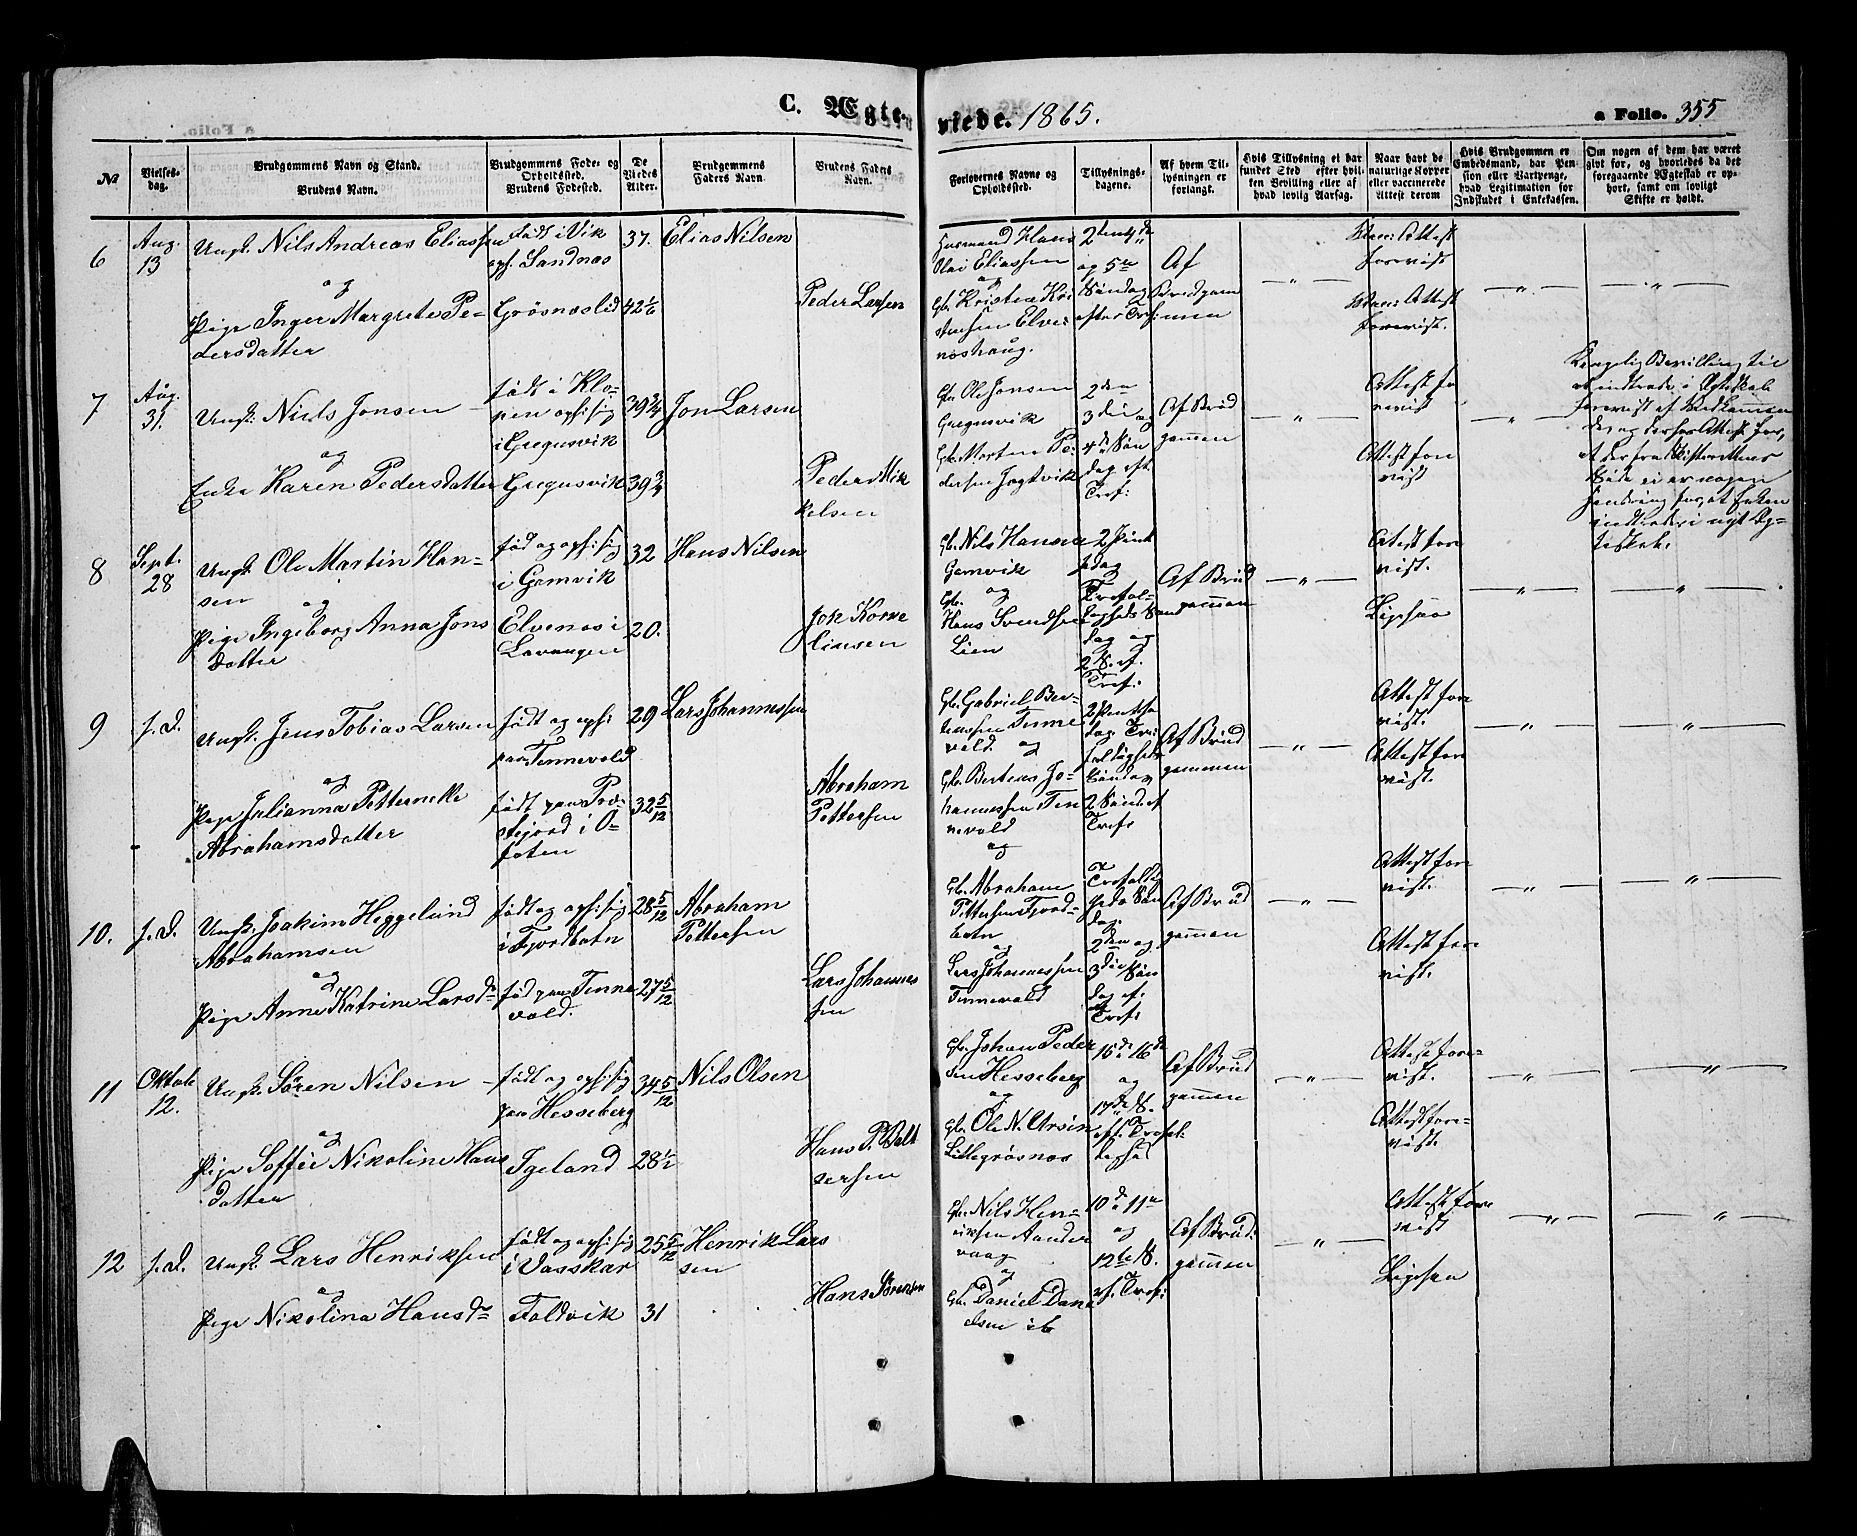 C. Ægte-
viede. 1865.
a Folio. 355
№
Vielses-
dag.
Brudgommens Navn og Stand.
Brudens Navn.
Brudgommens Føde- og
Opholdssted.
Brudens Fødested.
De
Viedes
Alder.
Brudgommens
Faders Navn.
Brudens Faders
Navn.
Forlovernes Navne og
Opholdssted.
Tillysnings-
dagene.
Af hvem Til-
lysningen er
forlangt.
Hvis Tillysning ei har
fundet Sted efter hvil-
ken Bevilling eller af
hvad lovlig Aarsag.
Naar havt de
naturlige Kopper
eller vaccinerede
Attest derom
Hvis Brudgommen er
Embedsmand, har Pen-
sion eller Vartpenge,
hvad Legitimation for
Indskudet i Enkekassen.
Om nogen af dem har været
givt før, og hvorledes da det
foregaaende Ægteskab er op-
hørt, samt om lovligt
Skifte er holdt.
6
Aug.
13
Ungk. Nils Andreas Eliassen
og
Pige Inger Margrete Pe-
dersdatter
født i Vik
oph. Sandnæs
Grøsnæslid
37.
42 1/6
Elias Nilsen
Peder Larsen
Husmand Hans
Olai Eliassen
og
Gb. Kristen Kri
stensen Elve
næshaug.
2den 4de
og 5te
Søndag
efter Tref:
Af
Brudgom
men
— " —
Vacc: Attest
forevist
Vacc: Attest
forevist.
— " —
— " —
7
Aug.
31.
Ungk. Niels Jonsen
og
Enke Karen Pedersdatter
født i Klo-
ven oph: sig
i Gregusvik
Gregusvik
39 3/4
39 3/4
Jon Larsen
Peder Mik
kelsen
Gb. Ole Jonsen
Gregusvik
Gb. Morten Pe-
dersen Jagtvik
2den
3die og
4de Søn
dag eft.
Tref:
Af Brud
gommen
— " —
Attest fo
revist
Attest fore
vist
— " —
Kongelig Bevilling til
at indtræde i Ægteskab
forevist af Vedkommen
de og derhos Attest for,
at der fra Skifterettens
Side ei er nogen
Hindring for, at Enken
indtræder i nyt Æg-
teskab.
8
Sept.
28
Ungk. Ole Martin Han-
sen
og
Pige Ingeborg Anna Jons
datter
fød og oph: sig
i Gamvik
Elvenæs i
Lavangen
32
20.
Hans Nilsen
Joh Korne
liussen
Gb. Nils Hansen
Gamvik
og
Gb.
Hans Svendsen
Lien
2 Pints
dag
Trefol-
digheds Søn
dag og
2 S. ef.
Tref:
Af Brud
gommen
— " —
Attest fore
vist.
Ligesaa
— " —
— " —
9
s. D.
Ungk. Jens Tobias Larsen
og
Pige Julianna Petternelle
Abrahamsdatter
født og oph:
paa Tennevold
født paa Præ-
stejord i O-
foten
29
32 5/12
Lars Johannessen
Abraham
Pettersen
Gb. Gabriel Ber-
teussen Tenne
vold og
Gb. Berteus Jo-
hannessen Ten
nevold
2 Pintse
dag. Tre
foldigheds
Søndag
2 Sønd ef
Tref:
Af Brud
gommen
— " —
Attest fore
vist.
Attest fore
vist.
— " —
— " —
10.
s. D.
Ungk. Joakim Heggelund
Abrahamsen
og
Pige Anne Katrine Larsdr
født og oph: sig
i Fjordbotn
fød paa Tenne
vold.
28 5/12
27 5/12
Abraham
Pettersen
Lars Johannes
sen
og
Gb. Abraham
Pettersen Fjord-
botn
og
Lars Johannessen
Tennevold
Trefoldig
heds Søn
dag.
2den og
3die Søn
dag ef.
Tref:
Af Brud
gommen
— " —
Attest fore
vist.
Attest fore
vist.
— " —
— " —
11
Oktob.
12.
Ungk. Søren Nilsen
og
Pige Soffie Nikoline Hans
datter
født og oph: sig
paa Hesseberg
Tgeland
34 5/12
28 1/2
Nils Olsen
Hans P. Balt
sersen
Gb. Johan Peder
sen Hesseberg
og
Gb. Ole N. Arvin
Lillegrøsnæs
15de 16de
og
17de S.
eft. Trefol.
dighed
Af Brud
gommen
— " —
Attest fore-
vist.
Attest fore-
vist.
— " —
— " —
12
s. D.
Ungk. Lars Henriksen
og
Pige Nikolina Hansdr
født og oph: sig
i Vasskar
Foldvik
25 5/12
31
Henrik Lars
sen
Hans Sørensen
Gb. Nils Hen-
riksen Aander
vaag
og
Gb. Daniel Dani
elsen ib
10de 11te
og
12te S.
ef. Tref:
Af Brud
gommen
— " —
Attest fore
vist
Ligesaa
— " —
— " —